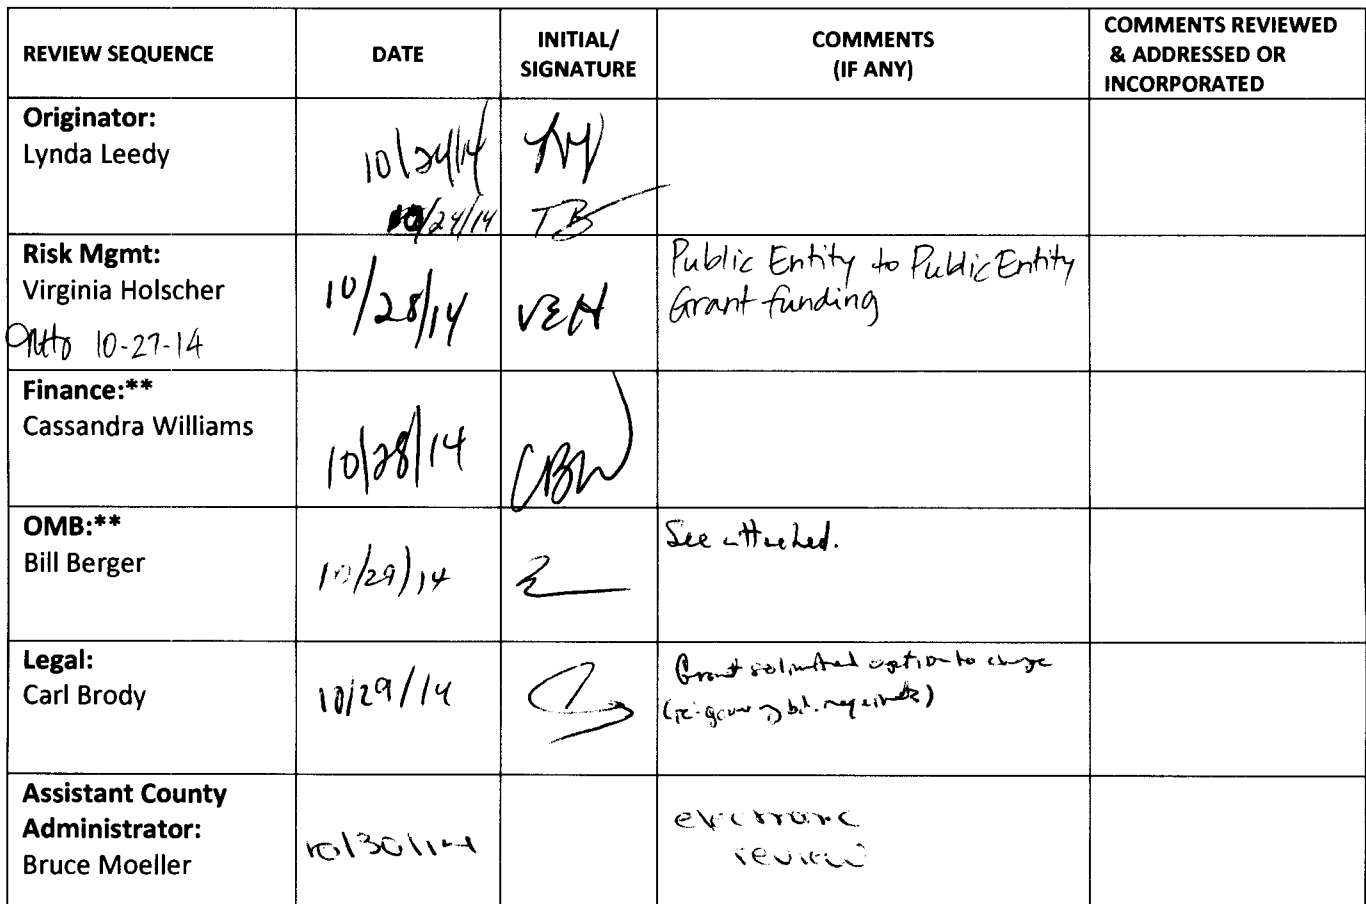 REVIEW SEQUENCE
DATE
INITIAL/
SIGNATURE
COMMENTS
(IF ANY)
COMMENTS REVIEWED
& ADDRESSED OR
INCORPORATED
Originator:
Lynda Leedy
10/24/14
10/24/14 TB
Risk Mgmt:
Virginia Holscher
10-27-14
10/28/14
VEH
Public Entity to Public Entity
Grant funding
Finance:**
Cassandra Williams
10/28/14
CBW
OMB:**
Bill Berger
10/29/14
See attached.
Legal:
Carl Brody
10/29/14
Grant option to
Assistant County
Administrator:
Bruce Moeller
10/30/14
review